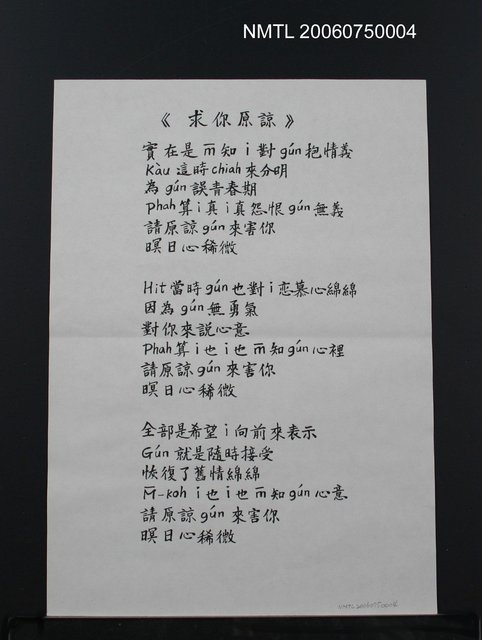 NMTL 20060750004
《求你原諒》
實在是m̄知i對gún抱情義
Kàu這時chiah來分明
為gún誤青春期
Phah算i真i真怨恨gún無義
請原諒gún來害你
暝日心稀微
Hit當時gún也對i恋慕心綿綿
因為gún無勇氣
對你來説心意
Phah算i也i也m̄知gún心裡
請原諒gún來害你
暝日心稀微
全部是希望i向前來表示
Gún就是隨時接受
恢復了舊情綿綿
M̄-koh i也i也m̄知gún心意
請原諒gún來害你
暝日心稀微
NMTL20060750004